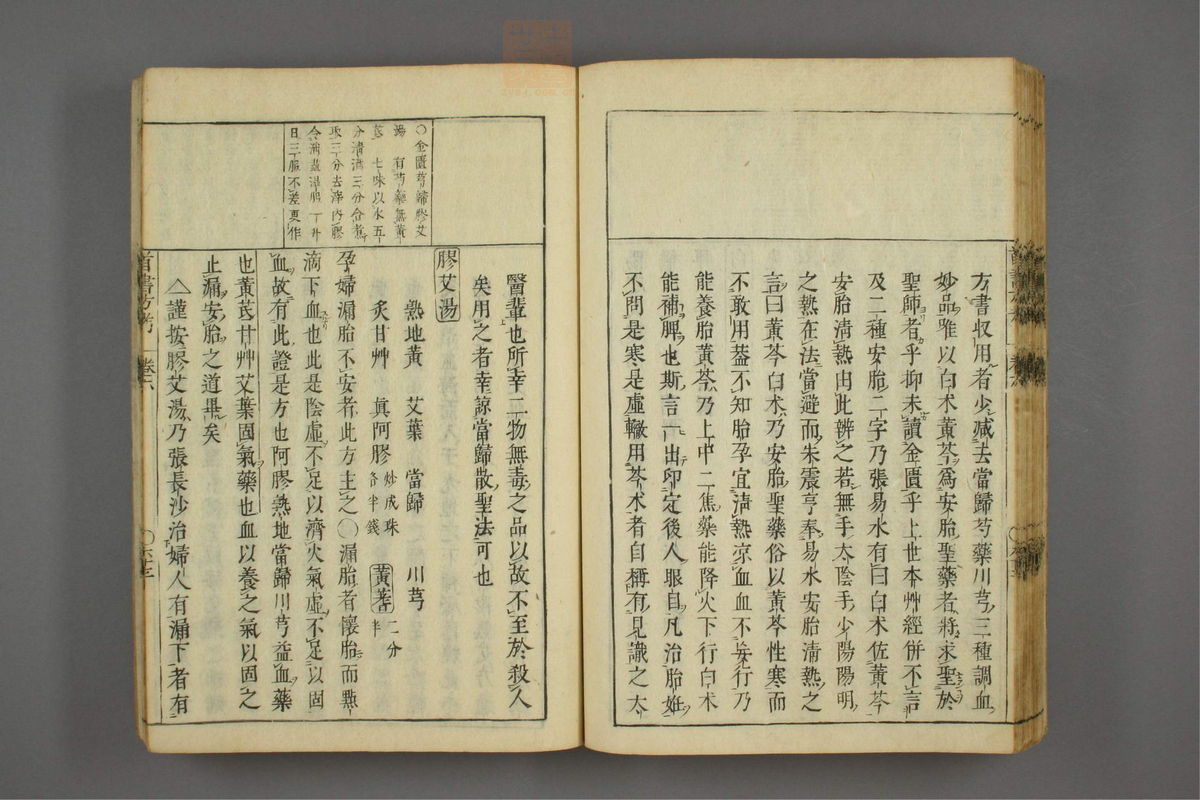 方書収用者少減去當歸芍藥川芎三種調血
妙品唯以白术黃芩爲安胎聖藥者將求聖於
聖師者乎抑未讀金匱乎上世本艸經併不言
及二種安胎二字乃張易水有曰白术佐黃芩
安胎清熱由此辨之若無手太陰手少陽陽明
之熱在法當避而朱震亨奉易水安胎清熱之
言曰黃芩白术乃安胎聖藥俗以黃芩性寒而
不敢用蓋不知胎孕宜清熱凉血血不妄行乃
能養胎黃芩乃上中二焦藥能降火下行白术
能補脾也斯言一出印定後人眼目凡治胎姙
不問是寒是虛轍用芩术者自稱有見識之大
醫輩也所幸二物無毒之品以故不至於殺人
矣用之者幸諒當歸散聖法可也
膠艾湯
熟地黃 艾葉 當歸 川芎
炙甘艸 眞阿膠 炒成珠各半錢 黃耆 二分半
孕婦漏胎不安者此方主之○漏胎者懷胎而點
滴下血也此是陰虛不足以濟火氣虛不足以固
血故有此證是方也阿膠熟地當歸川芎益血藥
也黃芪甘艸艾葉固氣藥也血以養之氣以固之
止漏安胎之道畢矣
△謹按膠艾湯乃張長沙治婦人有漏下者有
○金匱芎歸膠艾
湯 有芍藥無黃
芪 七味以水五
分清酒三分合煮
取三分去滓內膠
令消盡溫服一升
日三服不差更作